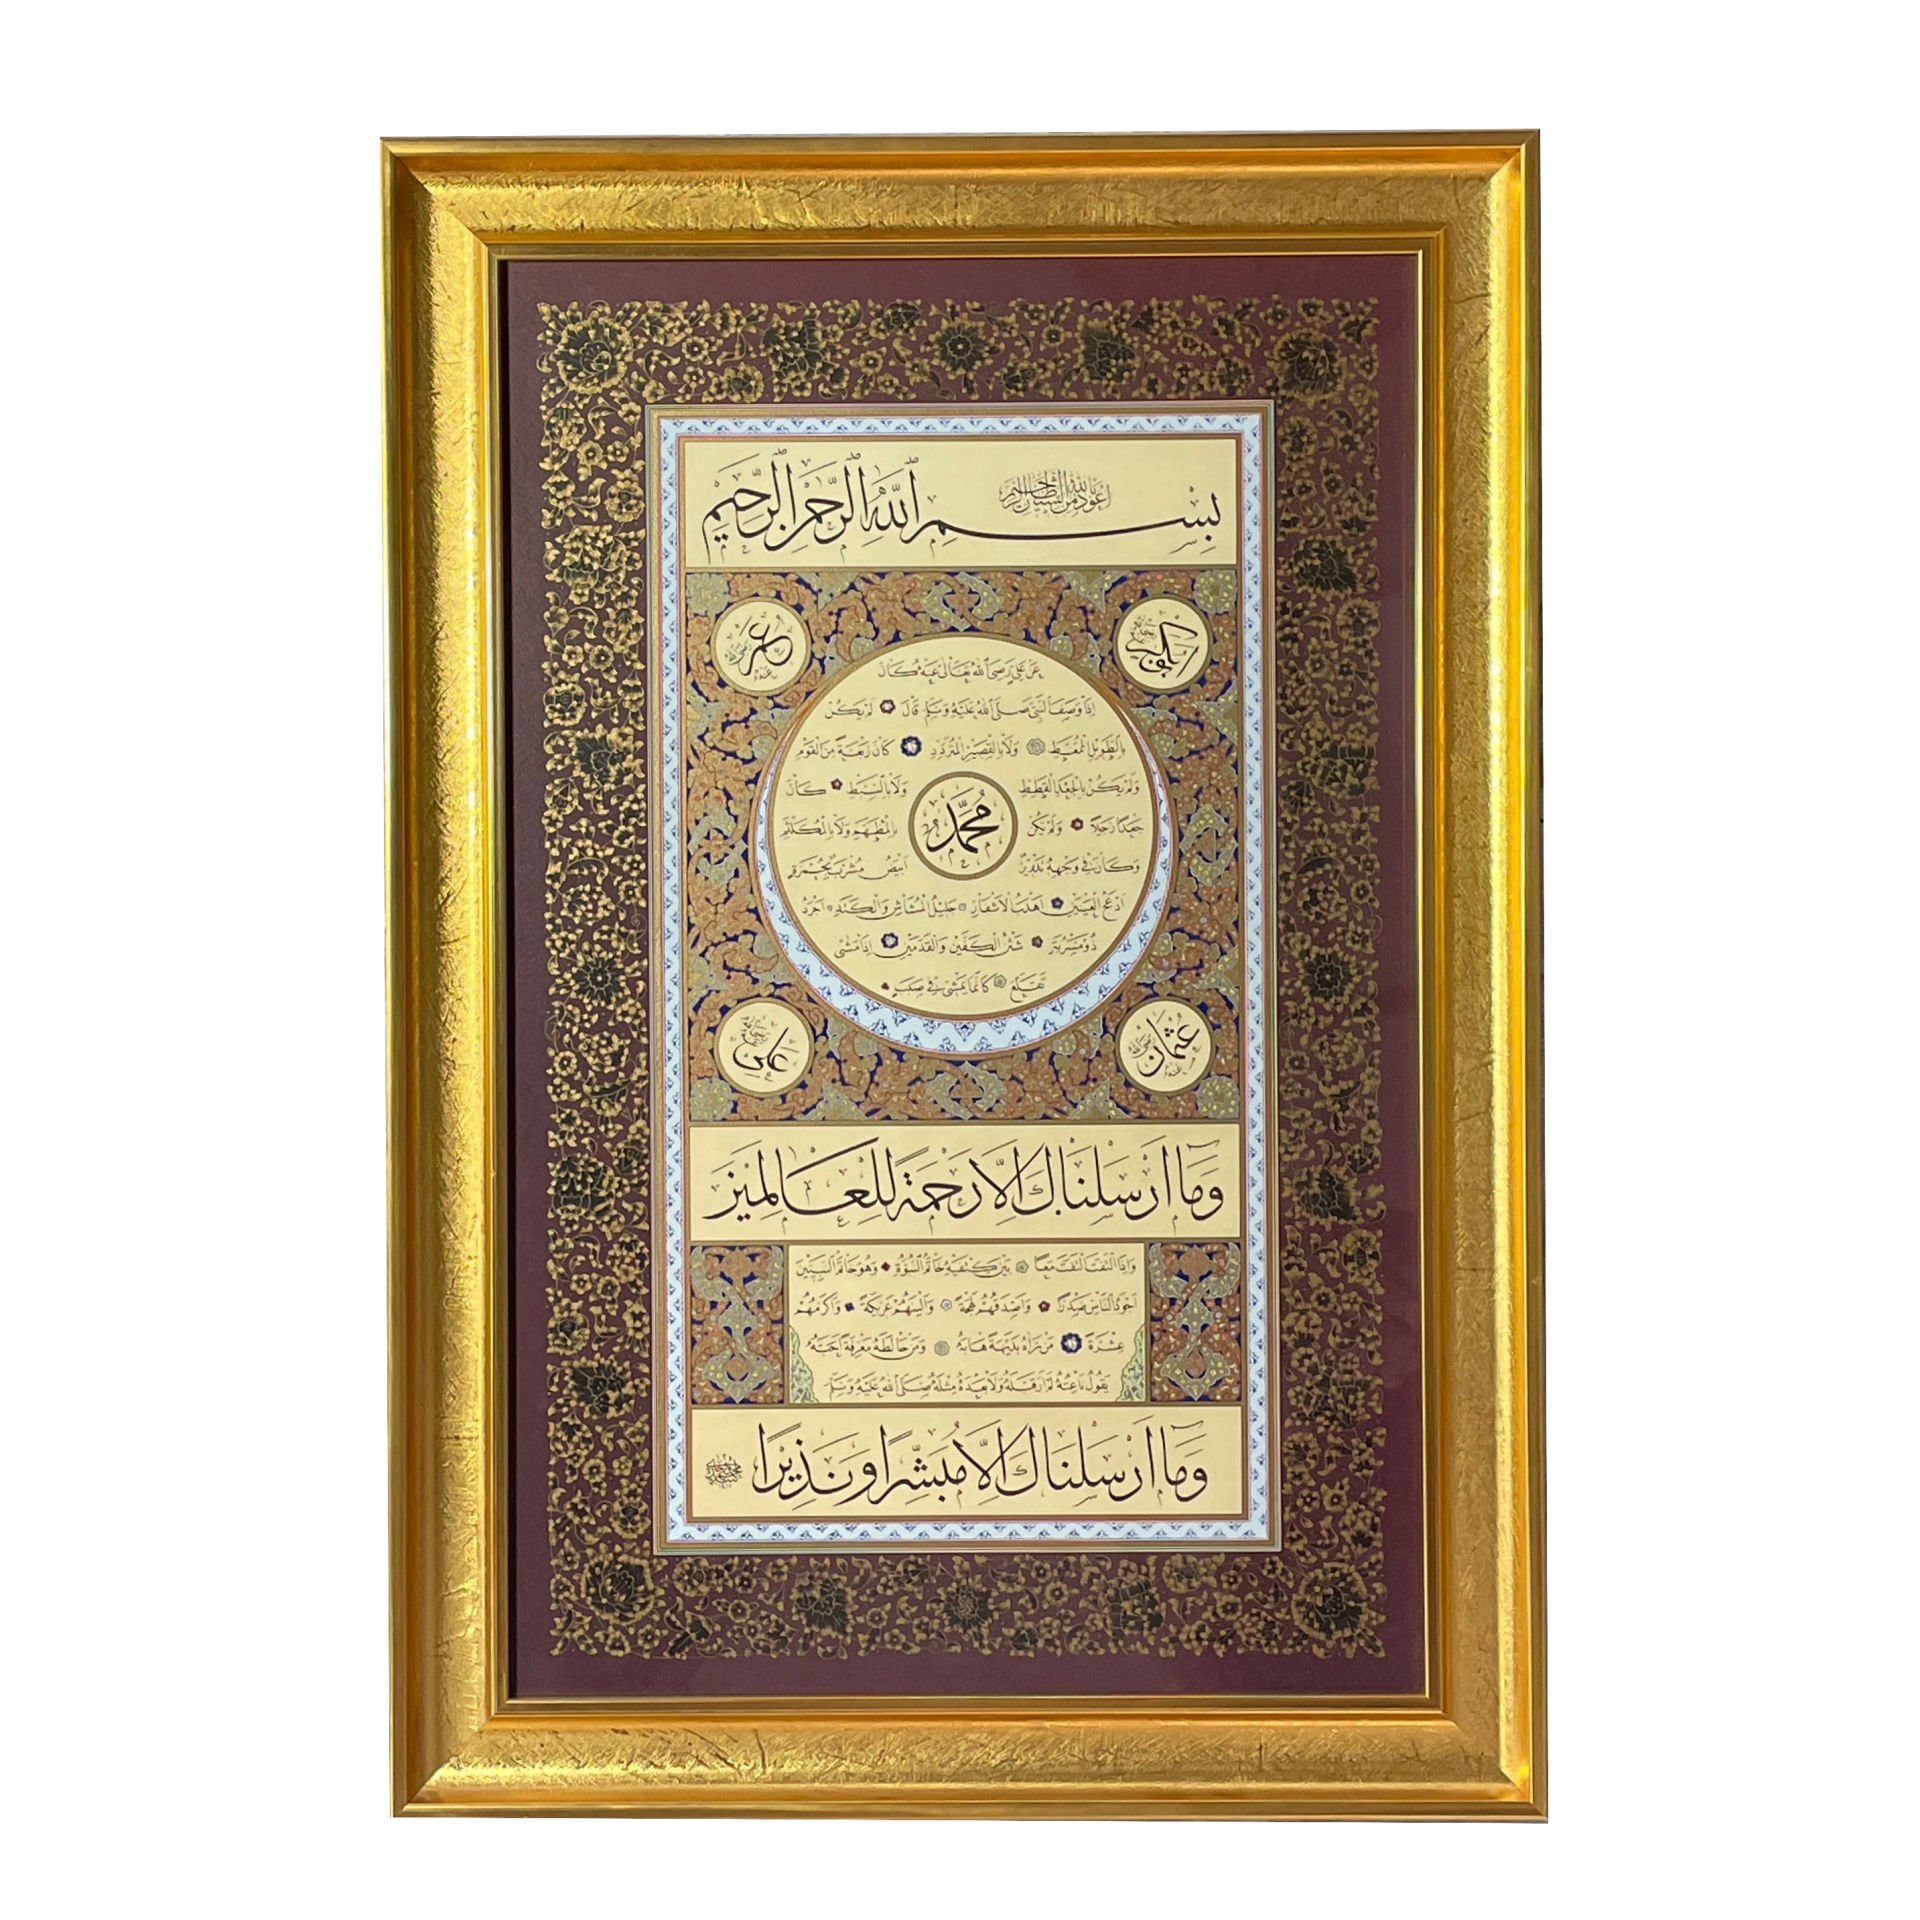 أعوذ بالله من الشيطان الرجيم
بِسْمِ ٱللَّهِ ٱلرَّحْمَنِ ٱلرَّحِيمِ
عمر رضي الله عنه
أبو بكر رضي الله عنه
عَنْ عَلِيٍّ رَضِيَ اللهُ تَعَالَى عَنْهُ كَانَ
إِذَا وَصَفَ النَّبِيَّ صَلَّى اللهُ عَلَيْهِ وَسَلَّمَ قَالَ لَمْ يَكُنْ
بِالطَّوِيلِ الْمُمَّغِطِ وَلَا بِالْقَصِيرِ الْمُتَرَدِّدِ كَانَ رَبْعَةً مِنَ الْقَوْمِ
وَلَمْ يَكُنْ بِالْجَعْدِ الْقَطَطِ وَلَا بِالسَّبْطِ كَانَ
جَعْدًا رَجِلًا وَلَمْ يَكُنْ بِالْمُطَهَّمِ وَلَا بِالْمُكَلْثَمِ
مُحَمَّد
وَكَانَ فِي وَجْهِهِ تَدْوِيرٌ أَبْيَضُ مُشْرَبٌ بِحُمْرَةٍ
أَدْعَجُ الْعَيْنَيْنِ أَهْدَبُ الْأَشْفَارِ جَلِيلُ الْمُشَاشِ وَالْكَتَدِ أَجْرَدُ
ذُو مَسْرُبَةٍ شَثْنُ الْكَفَّيْنِ وَالْقَدَمَيْنِ إِذَا مَشَى
تَقَلَّعَ كَأَنَّمَا يَمْشِي فِي صَبَبٍ
علي رضي الله عنه
عثمان رضي الله عنه
وَمَا أَرْسَلْنَاكَ إِلَّا رَحْمَةً لِلْعَالَمِينَ
وَإِذَا الْتَفَتَ الْتَفَتَ مَعًا بَيْنَ كَتِفَيْهِ خَاتَمُ النُّبُوَّةِ وَهُوَ خَاتَمُ النَّبِيِّينَ
أَجْوَدُ النَّاسِ صَدْرًا وَأَصْدَقُهُمْ لَهْجَةً وَأَلْيَنُهُمْ عَرِيكَةً وَأَكْرَمُهُمْ
عِشْرَةً مَنْ رَآهُ بَدِيهَةً هَابَهُ وَمَنْ خَالَطَهُ مَعْرِفَةً أَحَبَّهُ
يَقُولُ نَاعِتُهُ لَمْ أَرَ قَبْلَهُ وَلَا بَعْدَهُ مِثْلَهُ صَلَّى اللهُ عَلَيْهِ وَسَلَّمَ
وَمَا أَرْسَلْنَاكَ إِلَّا مُبَشِّرًا وَنَذِيرًا